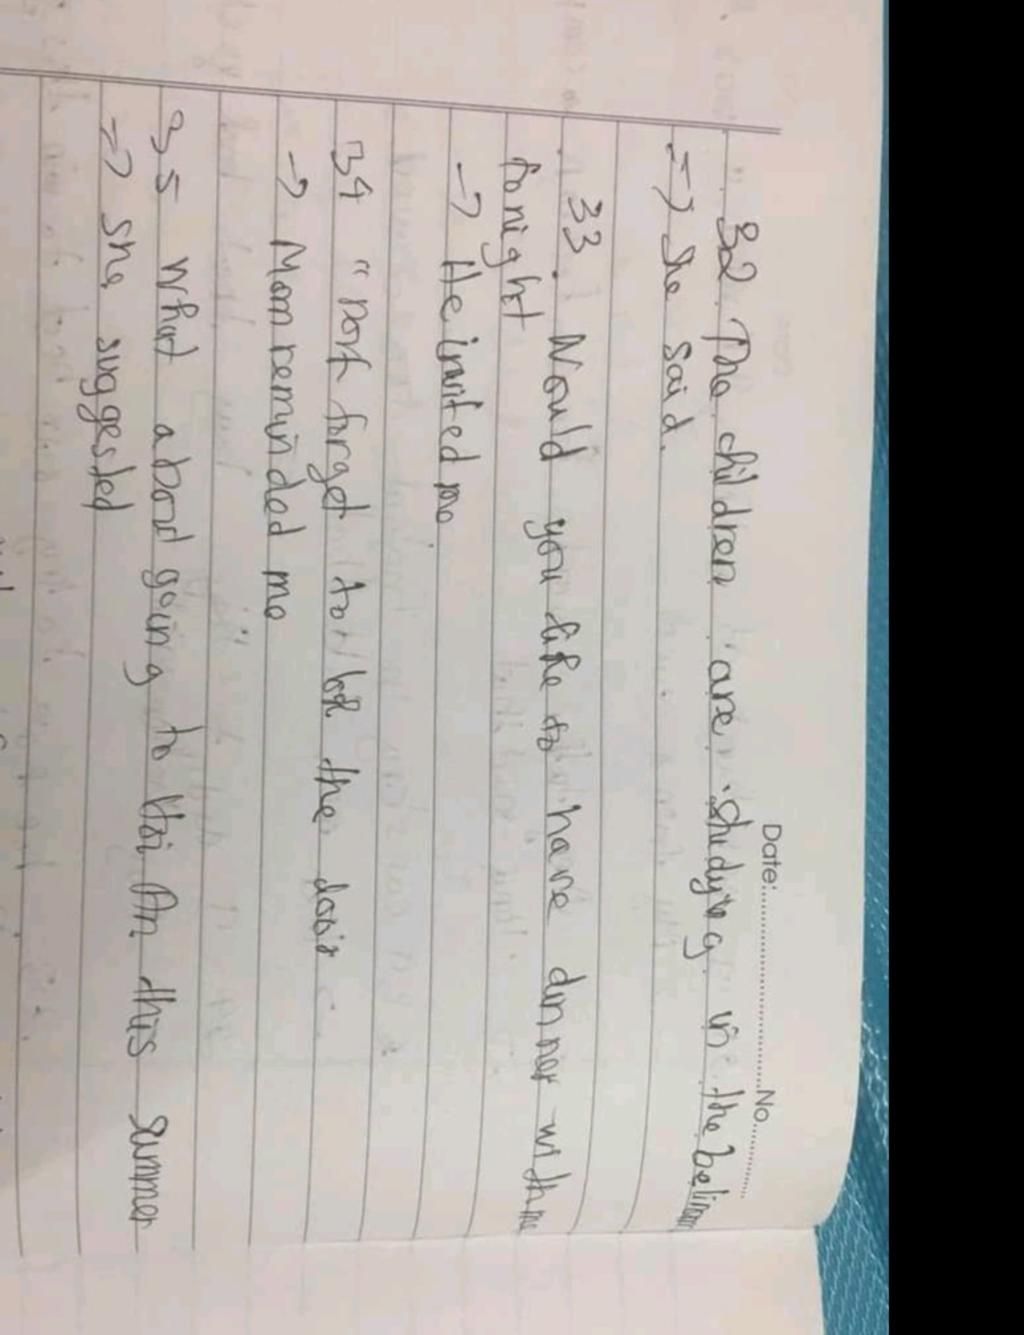 Date:............................No............
32. The children are studying in the
=> She said.
33. Would you like to have dinner with me
tonight
-> He invited me
34 " not forget to the door
-> Mom reminded me
35 What about going to Hoi An this summer
=> she suggested